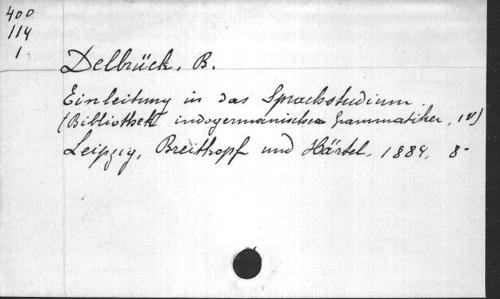 400
114
1
Delbrück, B.
Einleitung in das Sprachstudium.
(Bibliothek indogermanischer Grammatiker, IV)
Leipzig, Breitkopf und Härtel, 1884, 8-